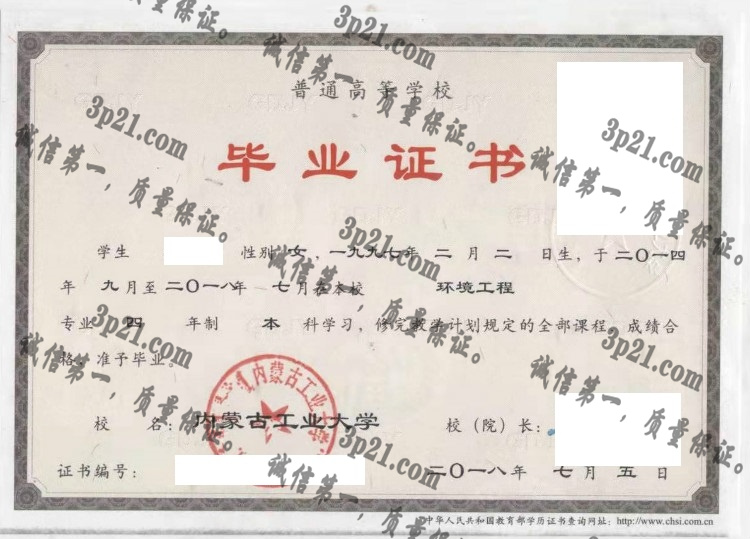 普通高等学校
毕业证书
学生 性别 女，一九九七年 二 月 二 日生，于二〇一四
年 九月至二〇一八年 七月在本校 环境工程
专业 四 年制 本 科学习，修完教学计划规定的全部课程，成绩合
格，准予毕业。
内蒙古工业大学
校 名：内蒙古工业大学 校（院）长：
证书编号： 二〇一八年 七月 五日
中华人民共和国教育部学历证书查询网址：http://www.chsi.com.cn
3p21.com
诚信第一，质量保证。
3p21.com
诚信第一，质量保证。
3p21.com
诚信第一，质量保证。
3p21.com
诚信第一，质量保证。
3p21.com
诚信第一，质量保证。
3p21.com
诚信第一，质量保证。
3p21.com
诚信第一，质量保证。
3p21.com
诚信第一，质量保证。